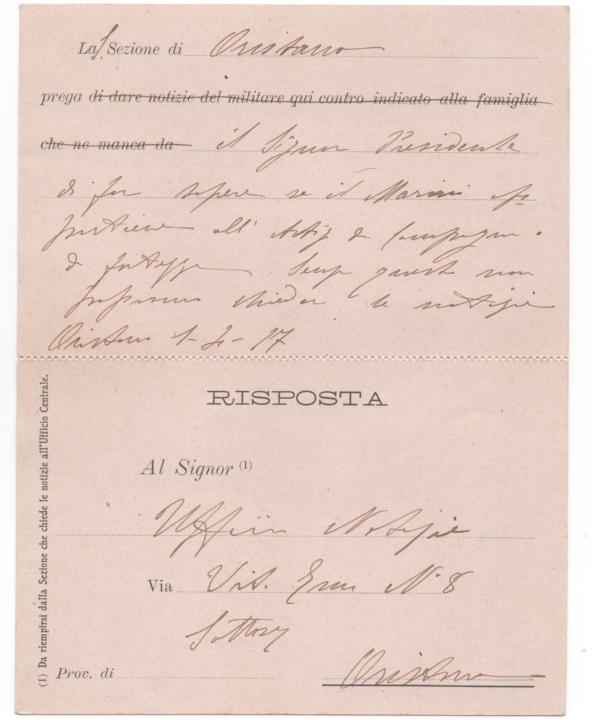 La S. Sezione di Oristano
prega di dare notizie del militare qui contro indicato alla famiglia
che ne manca da il Signor Presidente
di far sapere se il Marini ap
partiene all' Artig da Campagna o
di fortezza Senza questo non
possiamo chieder le notizie
Oristano 1-2-17
RISPOSTA
Al Signor (1)
Ufficio Notizie
Via Vit. Em N 8
Oristano
Prov. di
(1) Da riempirsi dalla Sezione che chiede le notizie all'Ufficio Centrale.